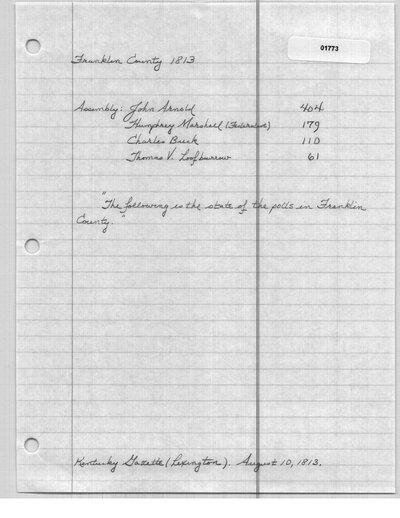 01773
Franklin County 1813
Assembly: John Arnold 404
Humphrey Marshall (Federalist) 179
Charles Buck 110
Thomas V. Loofburrow 61
"The following is the state of the polls in Franklin
County."
Kentucky Gazette (Lexington). August 10, 1813.